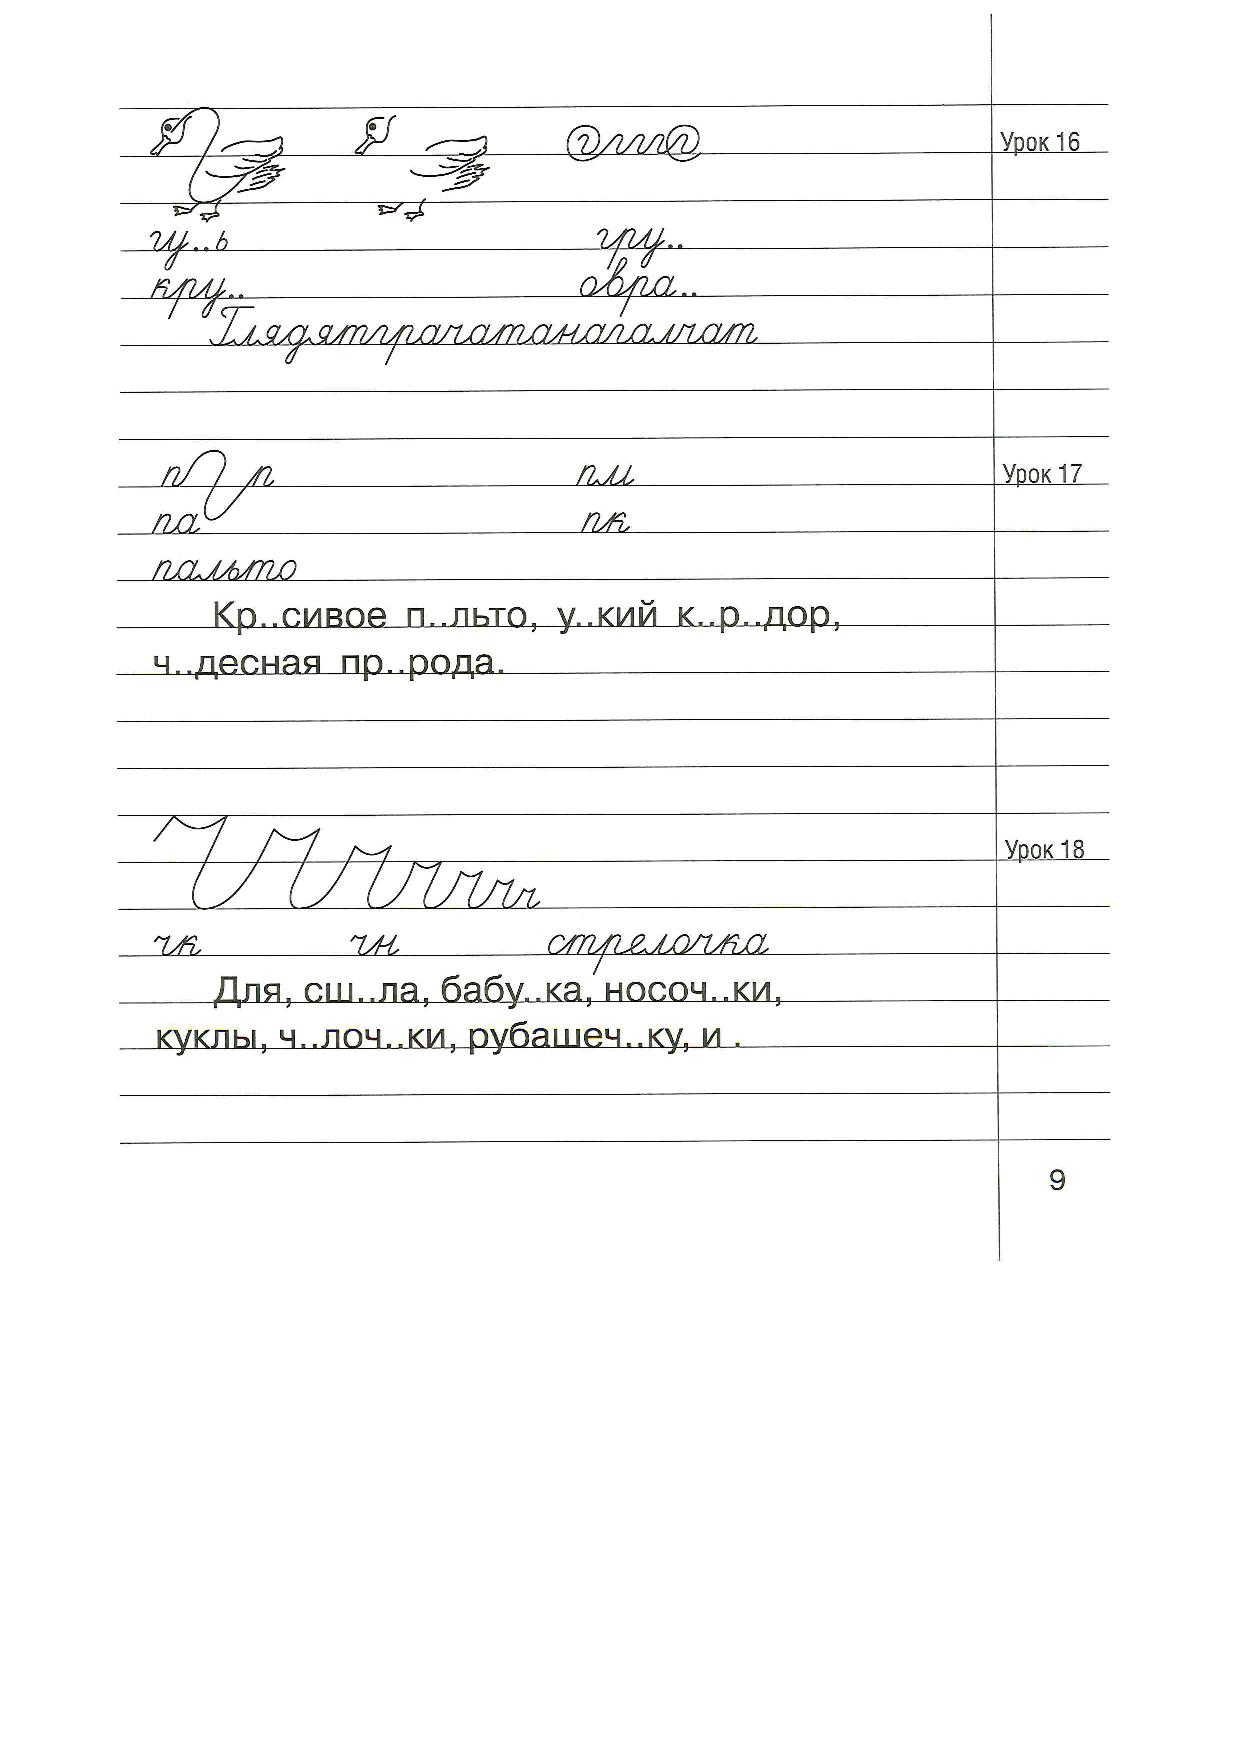 гггг Урок 16
гу..ь гру..
кру.. овра..
Глядятграчатанагалчат
п п пм Урок 17
па пк
пальто
Кр..сивое п..льто, у..кий к..р..дор,
ч..десная пр..рода.
ч ч ч ч ч ч ч Урок 18
чк чн стрелочка
Для, сш..ла, бабу..ка, носоч..ки,
куклы, ч..лоч..ки, рубашеч..ку, и .
9